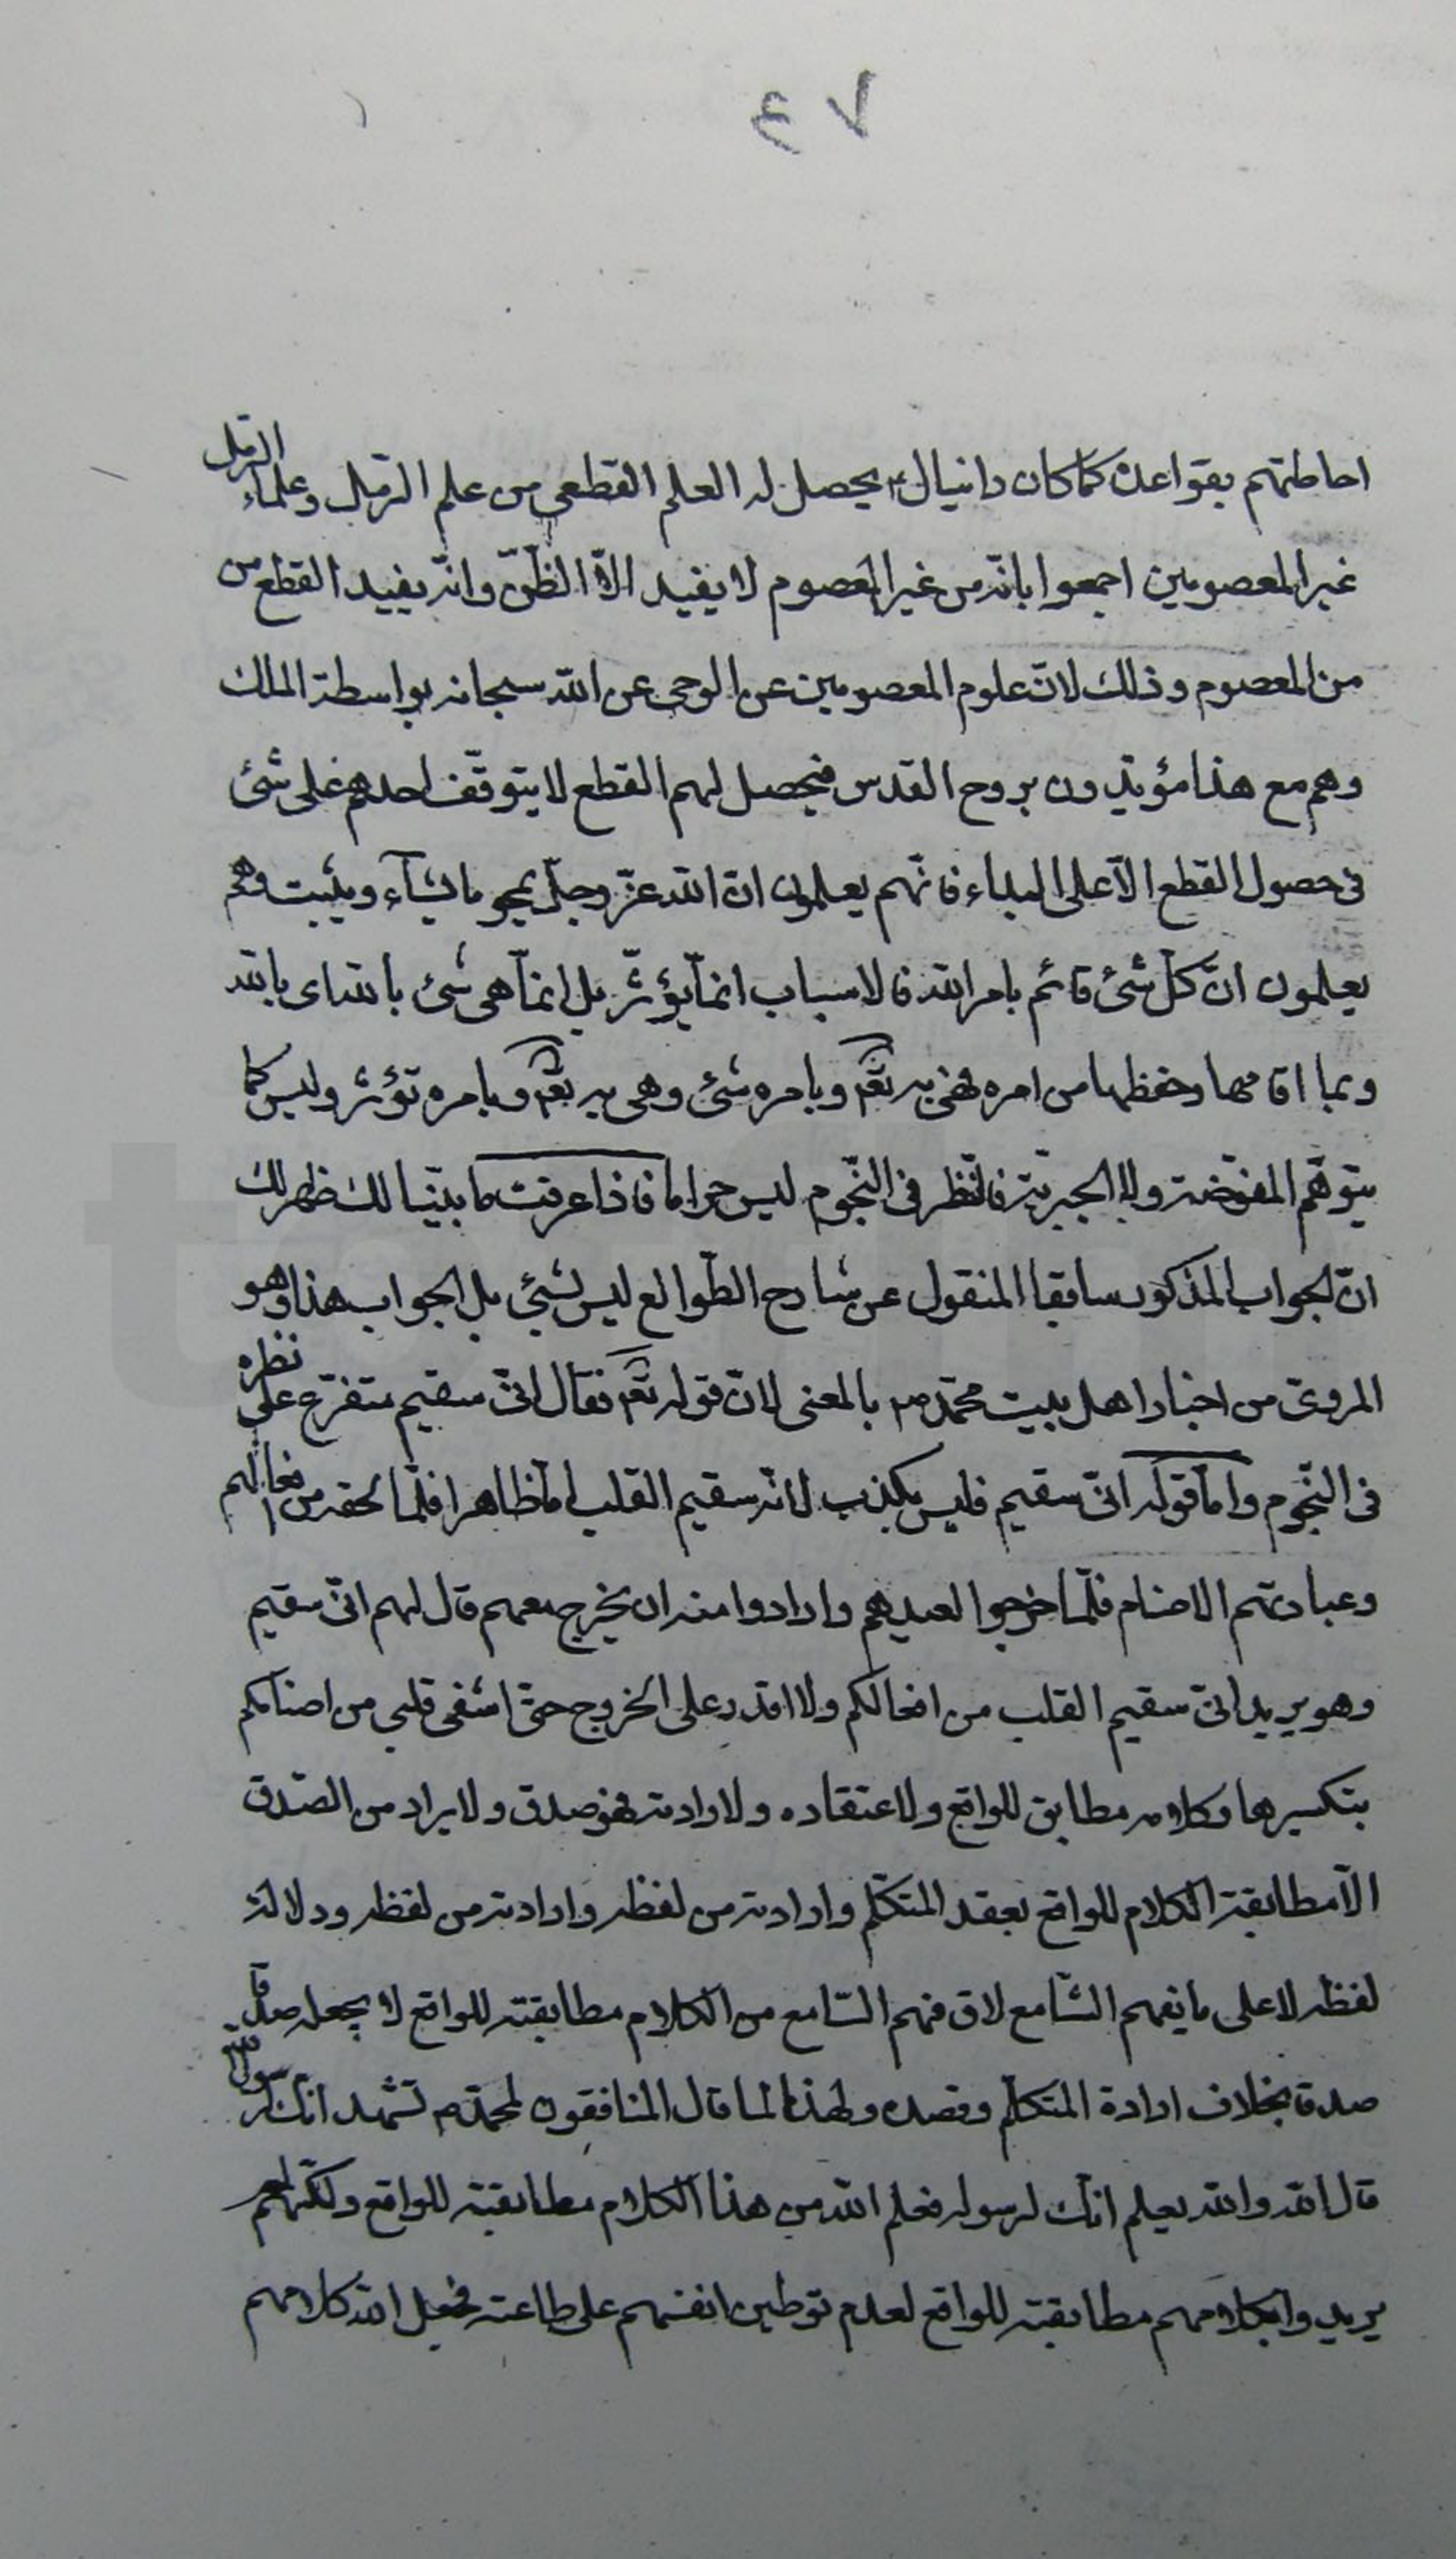 ٧٤
احاطتهم بقواعده كما كان دانيال ع يحصل له العلم القطعي من علم الرمل وعلماء الرمل
غير المعصومين اجمعوا بانّه من غير المعصوم لا يفيد الاّ الظنّ وانّه يفيد القطع من
من المعصوم وذلك لانّ علوم المعصومين عن الوحي عن الله سبحانه بواسطة الملك
وهم مع هذا مؤيّدون بروح القدس فيحصل لهم القطع لا يتوقّف احدهم على شئ
في حصول القطع الاّ على البداء فانّهم يعلمون انّ الله عزّ وجلّ يمحو ما يشآء ويثبت وهم
يعلمون انّ كلّ شئ قائم بامر الله فالاسباب انمّا يؤثّر بل انمّا هي شئ بالله اى بالله
وبما اقامها وحفظها من امره فهي به تعم وبامره شئ وهي به تعم وبامره تؤثّر وليس كما
يتوهّم المفوّضة ولا الجبريّة فالنّظر في النّجوم ليس حراما فاذا عرفت ما بيّنا لك ظهر لك
انّ الجواب المذكور سابقا المنقول عن شارح الطّوالع ليس بشئ بل الجواب هذا وهو
المروىّ من اخبار اهل بيت محمّد ص بالمعنى لانّ قوله تعم فقال انّى سقيم متفرّع على نظره
في النّجوم وامّا قوله انّى سقيم فليس بكذب لانّه سقيم القلب امّا ظاهرا فلما لحقه من افعالهم
وعبادتهم الاصنام فلمّا خرجوا لعيدهم وارادوا منه ان يخرج معهم قال لهم انّى سقيم
وهو يريد انّى سقيم القلب من افعالكم ولا اقدر على الخروج حتىّ اشفى قلبي من اصنامكم
بتكسيرها وكلامه مطابق للواقع ولاعتقاده ولارادته فهو صدق ولا يراد من الصّدق
الاّ مطابقة الكلام للواقع بعقد المتكلّم وارادته من لفظه وارادته من لفظه ودلالة
لفظه لا على ما يفهم السّامع لانّ فهم السّامع من الكلام مطابقته للواقع لا يجعله صدقا
صدقا بخلاف ارادة المتكلّم وقصده ولهذا لما قال المنافقون لمحمّد ص نشهد انّك لرسول الله
قال الله والله يعلم انّك لرسوله فعلم الله من هذا الكلام مطابقته للواقع ولكنّهم لم
يريدوا بكلامهم مطابقته للواقع لعدم توطين انفسهم على طاعته فجعل الله كلامهم